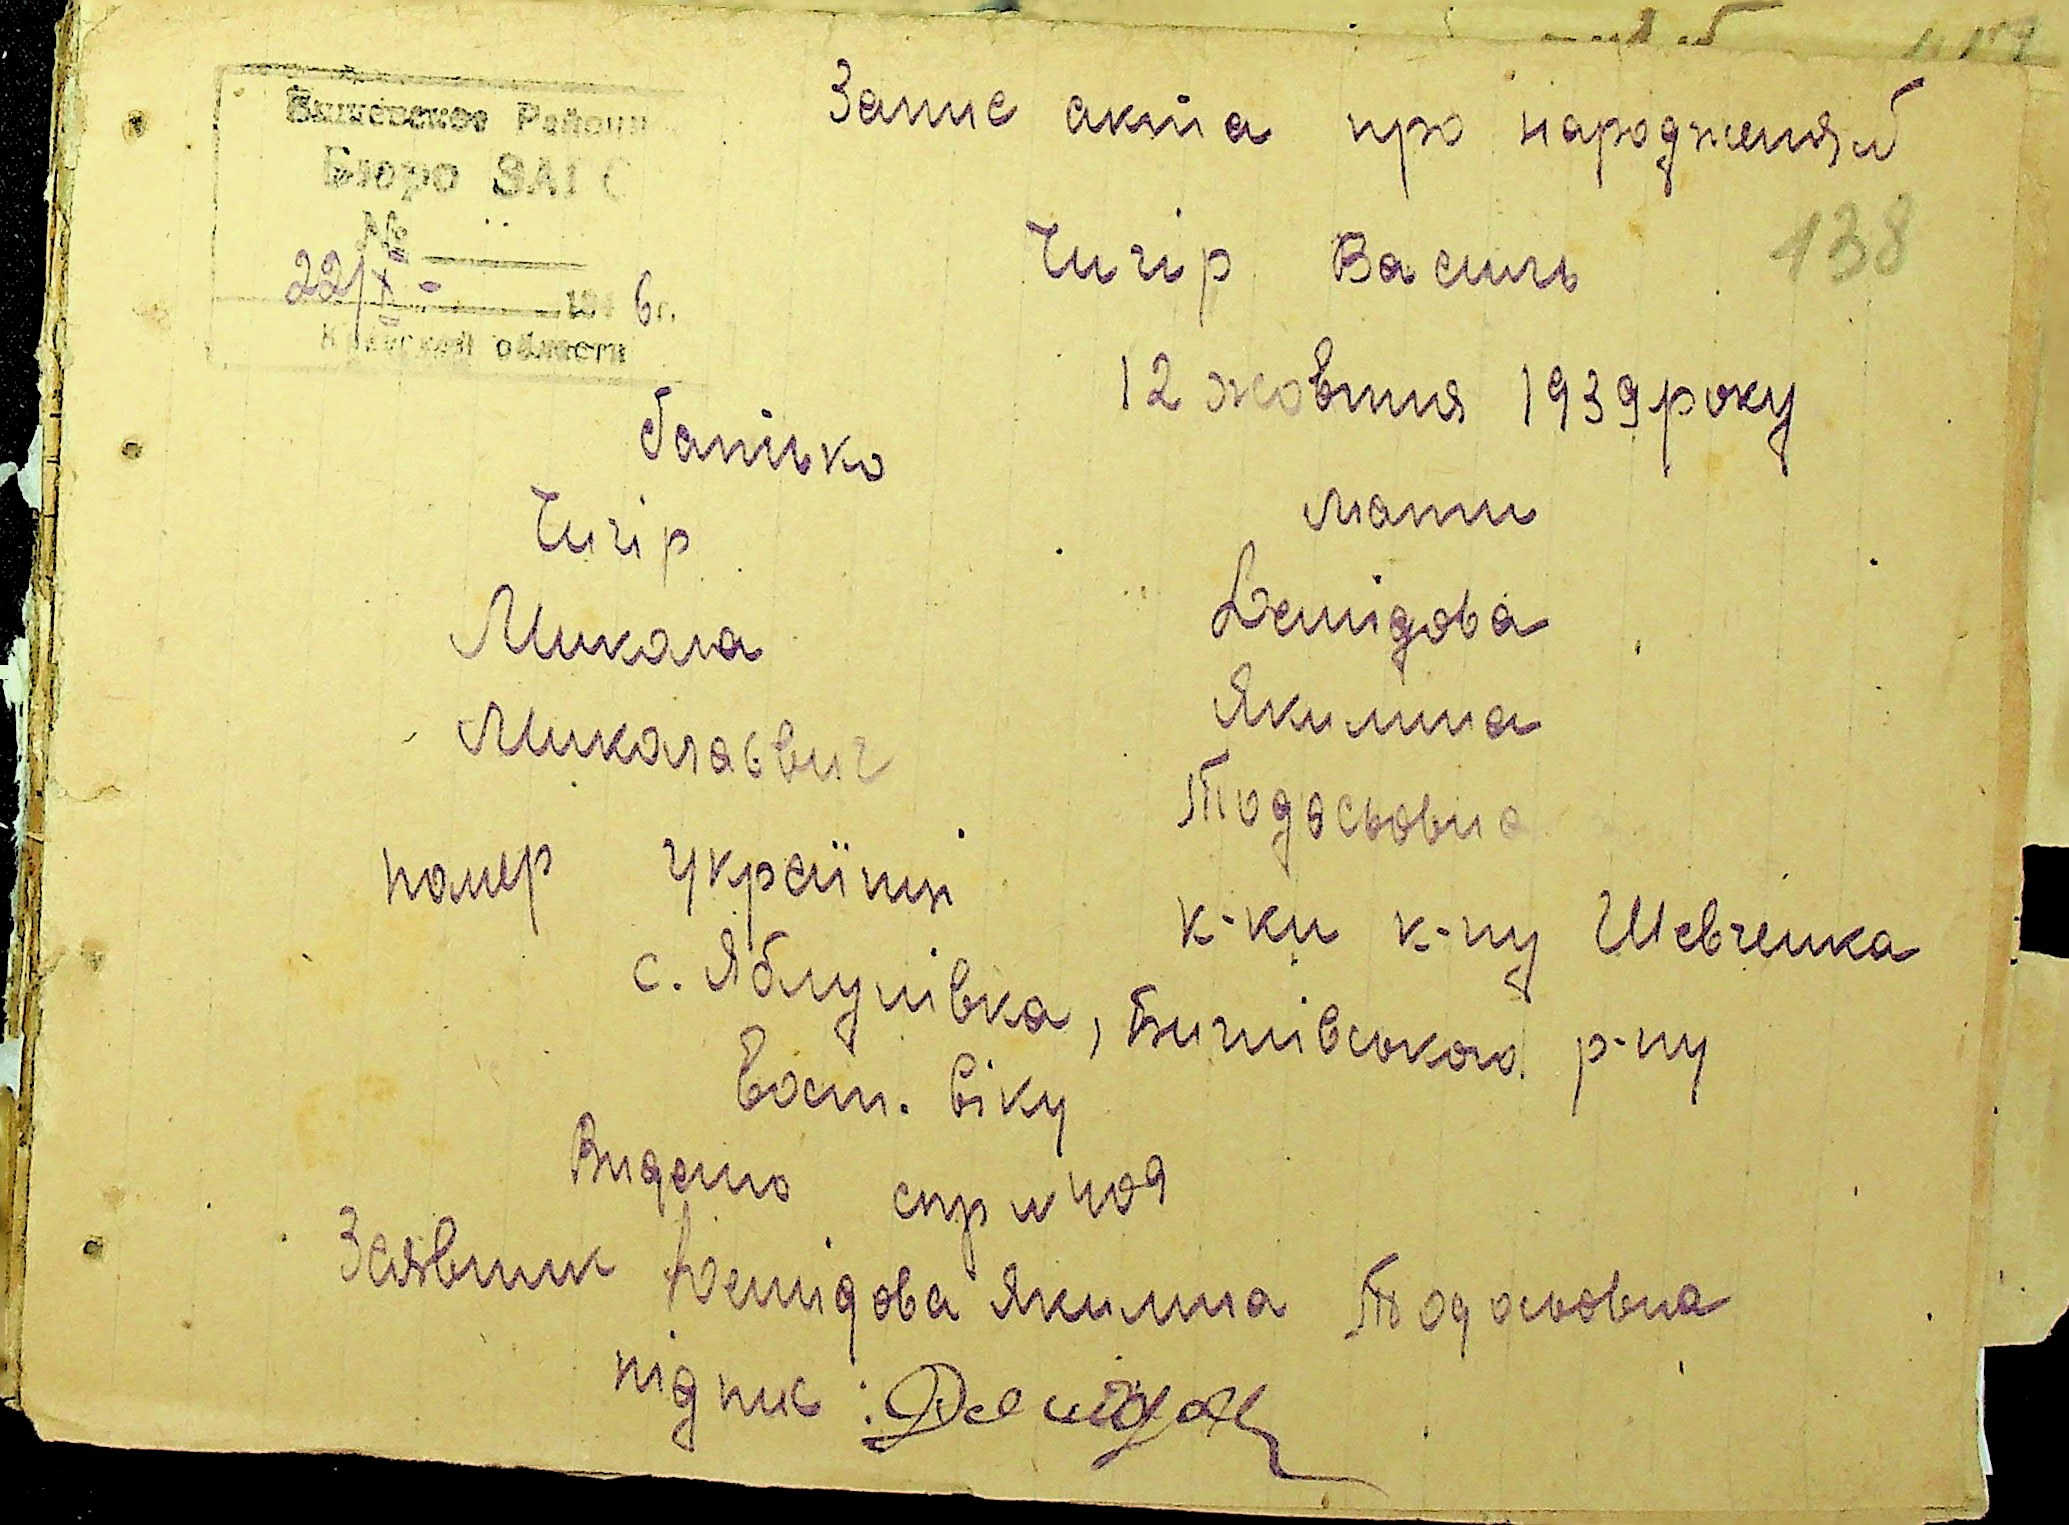 Бишевское Районн
Бюро ЗАГС
№
22/X - 194 6 г.
Киевской области
Запис акта про народження
138
Чигір Василь
12 жовтня 1939 року
батько
мати
Чигір
Демідова
Микола
Якилина
Миколаєвич
Тодосьовна
помер українці
к-ки к-пу Шевченка
с. Яблунівка, Бишівського р-ну
вост. віку
Видано спр 409
Заявник Демідова Якилина Тодосьовна
підпис: